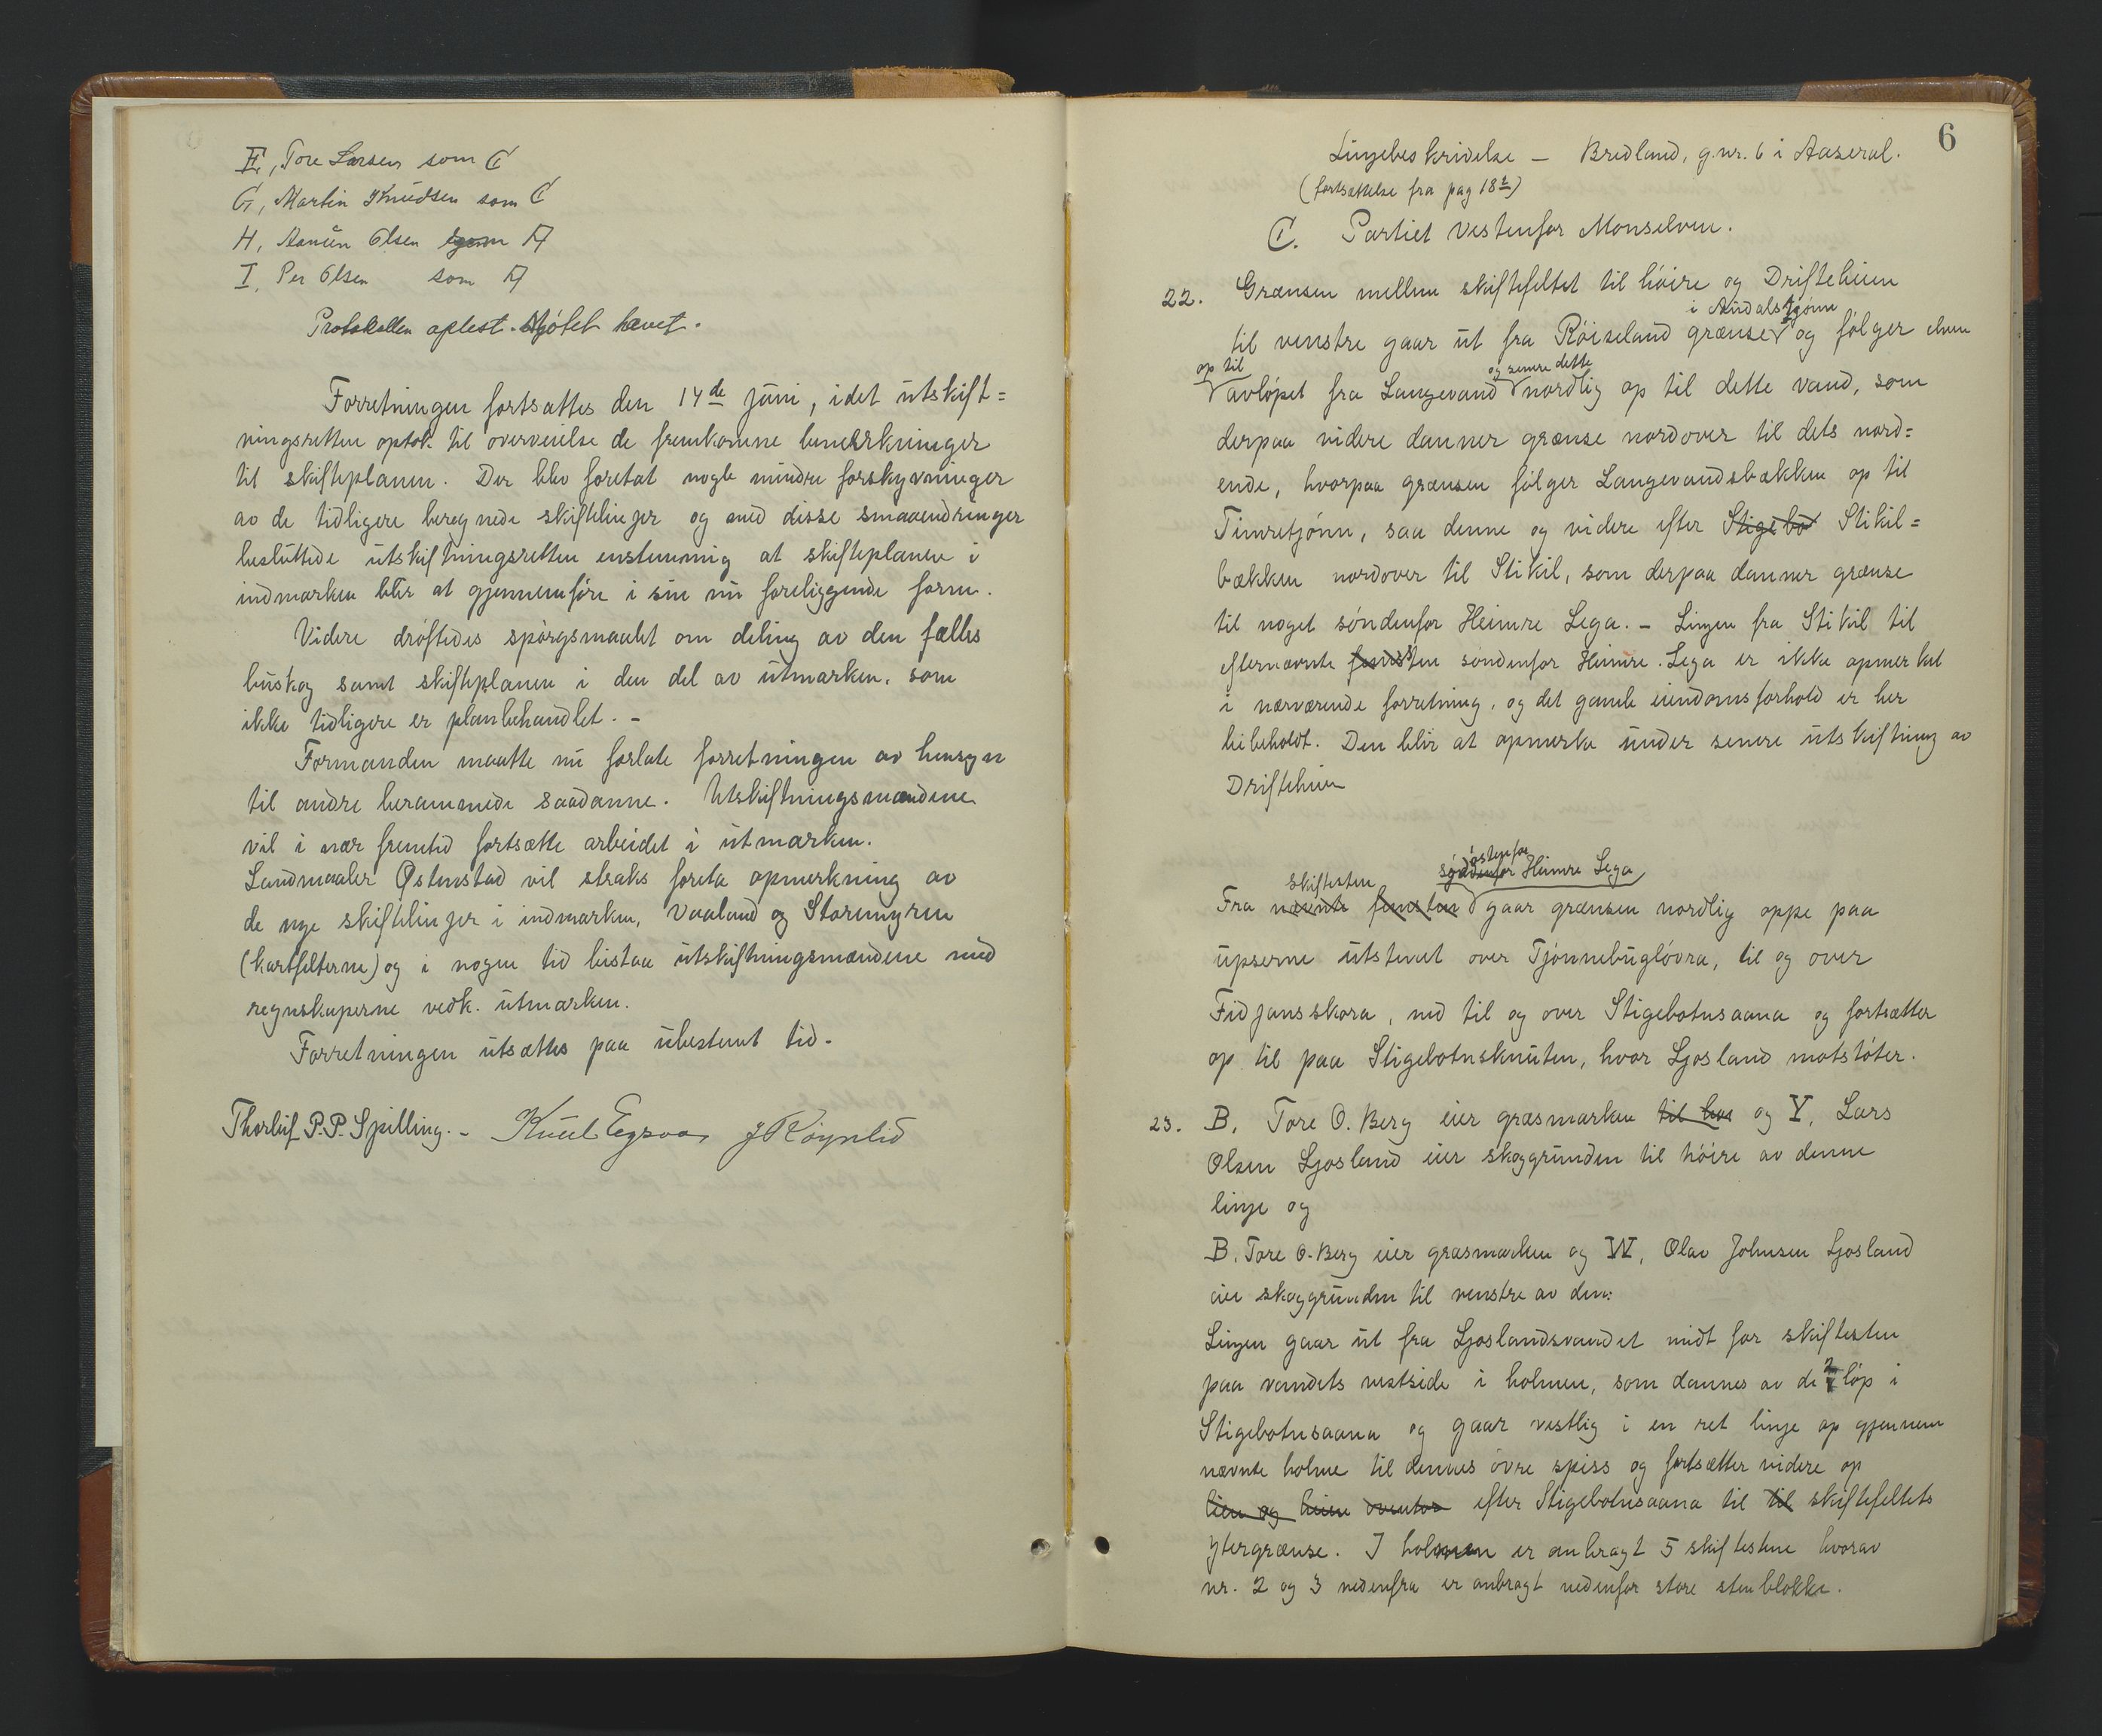 E, Tore Larsen som C
G, Martin Knudsen som C
H, Aanün Olsen som A
I, Per Olsen som A
Protokollen oplest. Mötet hævet.
Forretningen fortsattes den 14de jüni, idet ütskift=
ningsretten optok til overveielse de fremkomne bemerkninger
til skifteplanen. Der blev foretat nogle mindre forskyvninger
av de tidligere beregnede skiftelinjer og med disse smaaendringer
beslüttede ütskiftningsretten enstemmig at skifteplanen i
indmarken blir at gjennemföre i sin nü foreliggende form.
Videre dröftedes spörgsmaalet om deling av den fælles
büskog samt skifteplanen i den del av ütmarken, som
ikke tidligere er planbehandlet. -
Formanden maatte nü forlate forretningen av hensyn
til andre berammede saadanne. Utskiftningsmændene
vil i nær fremtid fortsætte arbeidet i ütmarken.
Landmaaler Østenstad vil straks foreta opmerkning av
de nye skiftelinjer i indmarken, Vaaland og Storemyren
(kartfelterne) og i nogen tid bistaa ütskiftningsmændene med
regnskaperne vedk. ütmarken.
Forretningen ütsættes paa übestemt tid.
Thorleif P. P. Spilling. - Knüt J Röynlid
6
Linjebeskrivelse - Bredland, g.nr. 6 i Aaseral.
(fortsættelse fra pag 18)
C. Partiet vestenfor Monselven.
22. Grænsen mellem skiftefeltet til höire og Drifteheien
i Aüdalstjönn
til venstre gaar üt fra Röiseland grænse og fölger elven
op til og senere dette
avlöpet fra Langevand nordlig op til dette vand, som
derpaa videre danner grænse nordover til dets nord=
ende, hvorpaa grænsen fölger Langevandsbækken op til
Timretjönn, saa denne og videre efter Stigebo Stikil=
bækken nordover til Stikil, som derpaa danner grænse
til noget söndenfor Heimre Lega. - Linjen fra Stikil til
efternævnte sten söndenfor Heimre Lega er ikke opmerket
i nærværende forretning, og det gamle eiendomsforhold er her
beibeholdt. Den blir at opmerke ünder senere ütskiftning av
Drifteheien
östenfor
skiftesten söndenfor Heimre Lega
Fra nævnte gaar grænsen nordlig oppe paa
üpserne ütstenet over Tjönnebüglövra, til og over
Fidjansskora, ned til og over Stigebotnsaana og fortsætter
op til paa Stigebotnsknüten, hvor Ljosland motstöter.
23. B. Tore O. Berg eier græsmarken til hos og Y, Lars
Olsen Ljosland eier skoggrünnden til höire av denne
linje og
B. Tore O. Berg eier græsmarken og W, Olav Johnsen Ljosland
eier skoggrünnden til venstre av den:
Linjen gaar üt fra Ljoslandsvandet midt for skiftesten
paa vandets vestside i holmen, som dannes av de 2 löp i
Stigebotnsaana og gaar vestlig i en ret linje op gjennem
nævnte holme til dennes övre spiss og fortsætter videre op
lien og heien ovenfor efter Stigebotnsaana til til skiftefeltets
ytergrænse. I holmen er anbragt 5 skiftestene hvorav
nr. 2 og 3 nedenfra er anbragt nedenfor store stenblokke.